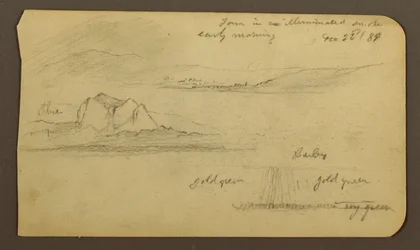 Town is illuminated in the
early morning
Dec 22d / 89
Blue
gold green
gold green
green